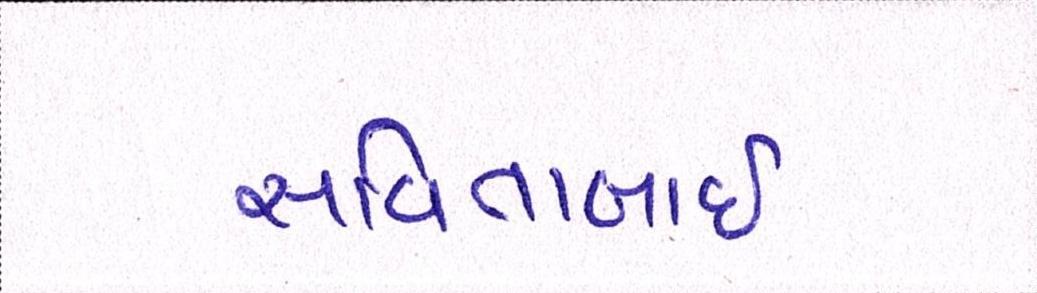 સવિતાબાઈ